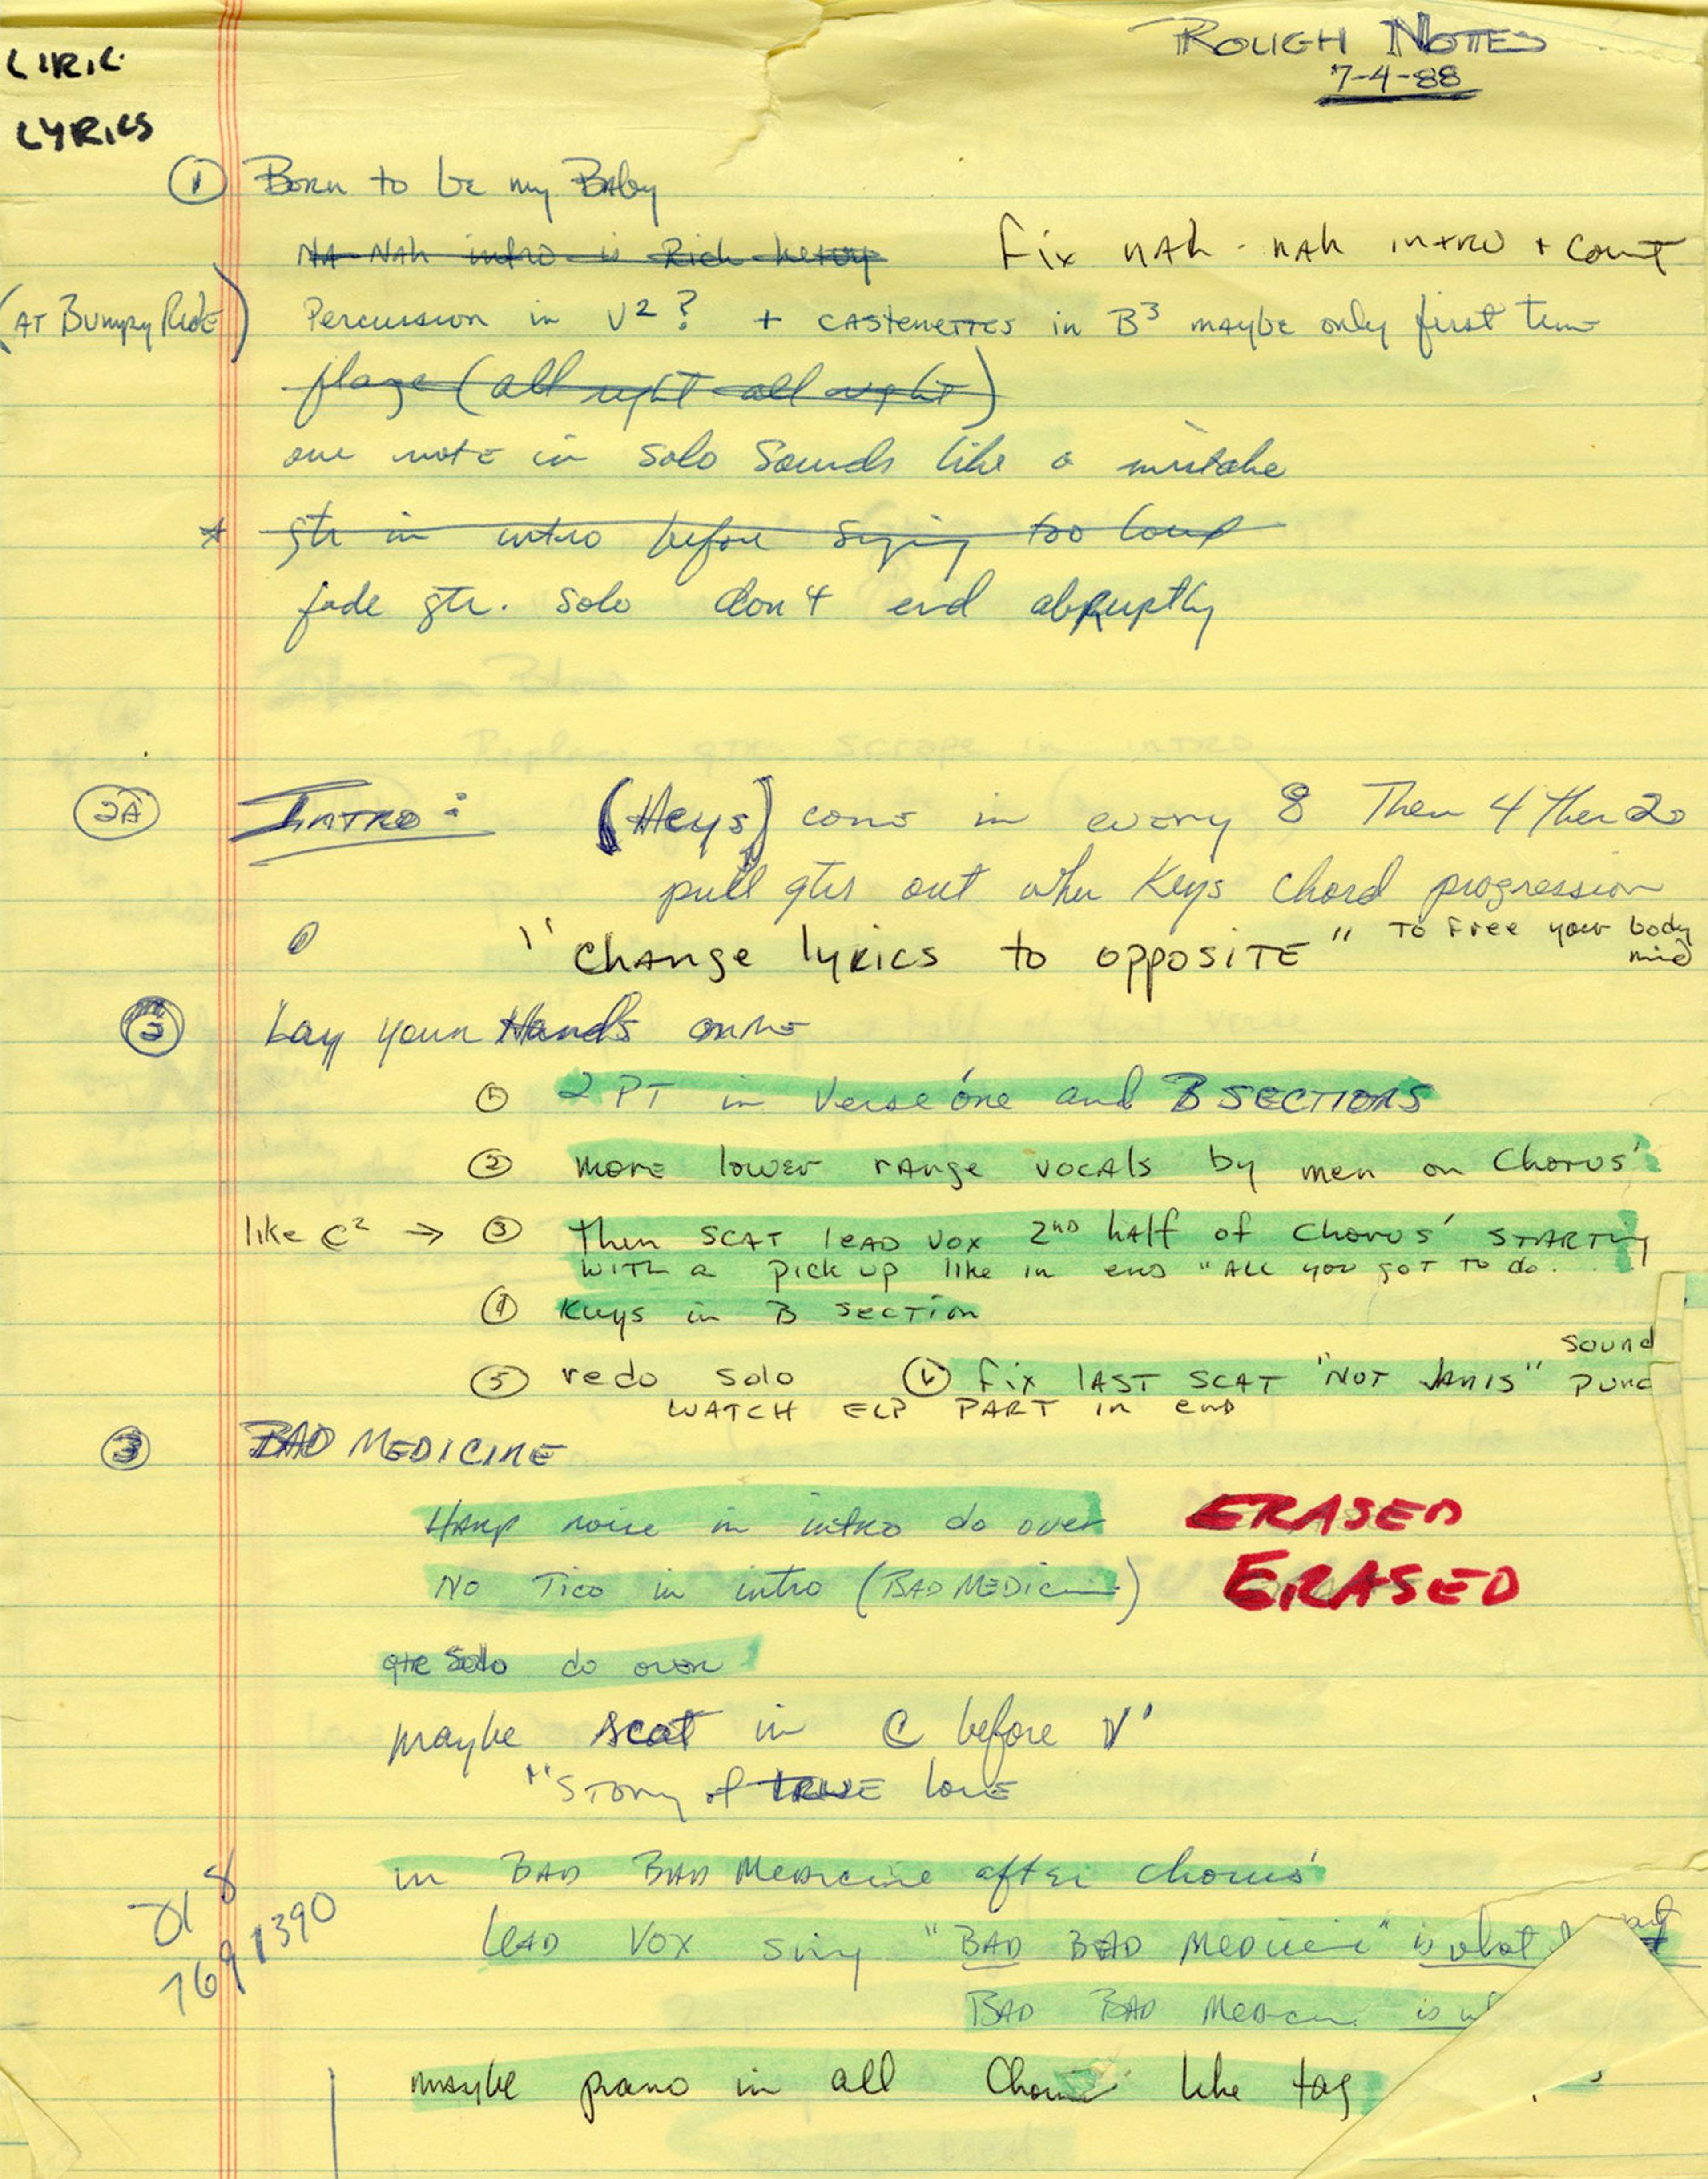 LIRIC
ROUGH NOTES
7-4-88
LYRICS
① Born to be my Baby
NA-NAh intro is Rich
Fix nAh - nAh intro + count
(AT Bumpy Ride) Percussion in V² ? + CASTENETTES in B³ maybe only first time
flange (all right all right)
one note in solo sounds like a mistake
* gtr in intro before singing too loud
fade gtr. solo don't end abRuptly
2A INTRO: (Keys) come in every 8 Then 4 Then 2
pull gtrs out when Keys chord progression
"change lyrics to opposITE" To Free your body
mind
② Lay your Hands on me
① 2 PT in Verse one and B SECTIONS
② more lower range vocals by men on Chorus'
like C² → ③ Then SCAT leAD vox 2ND half of Chorus' STARTing
WITH a pick up like in end "ALL you goT To do..
④ Keys in B secTion
⑤ redo solo ⑥ fix lAST SCAT "NOT JANIS" sound
punc
WATCH ELP PART in end
③ BAD MEDICINE
HARP noise in intro do over ERASED
No Tico in intro (BAD MEDicine) ERASED
gtr Solo do over
maybe scat in C before V'
"STory of TRUE love
in BAD BAD Medicine after chorus'
LEAD VOX sing "BAD BAD Medicine" is what I
BAD BAD Medicine is
maybe piano in all Chorus like tag
718
769 1390